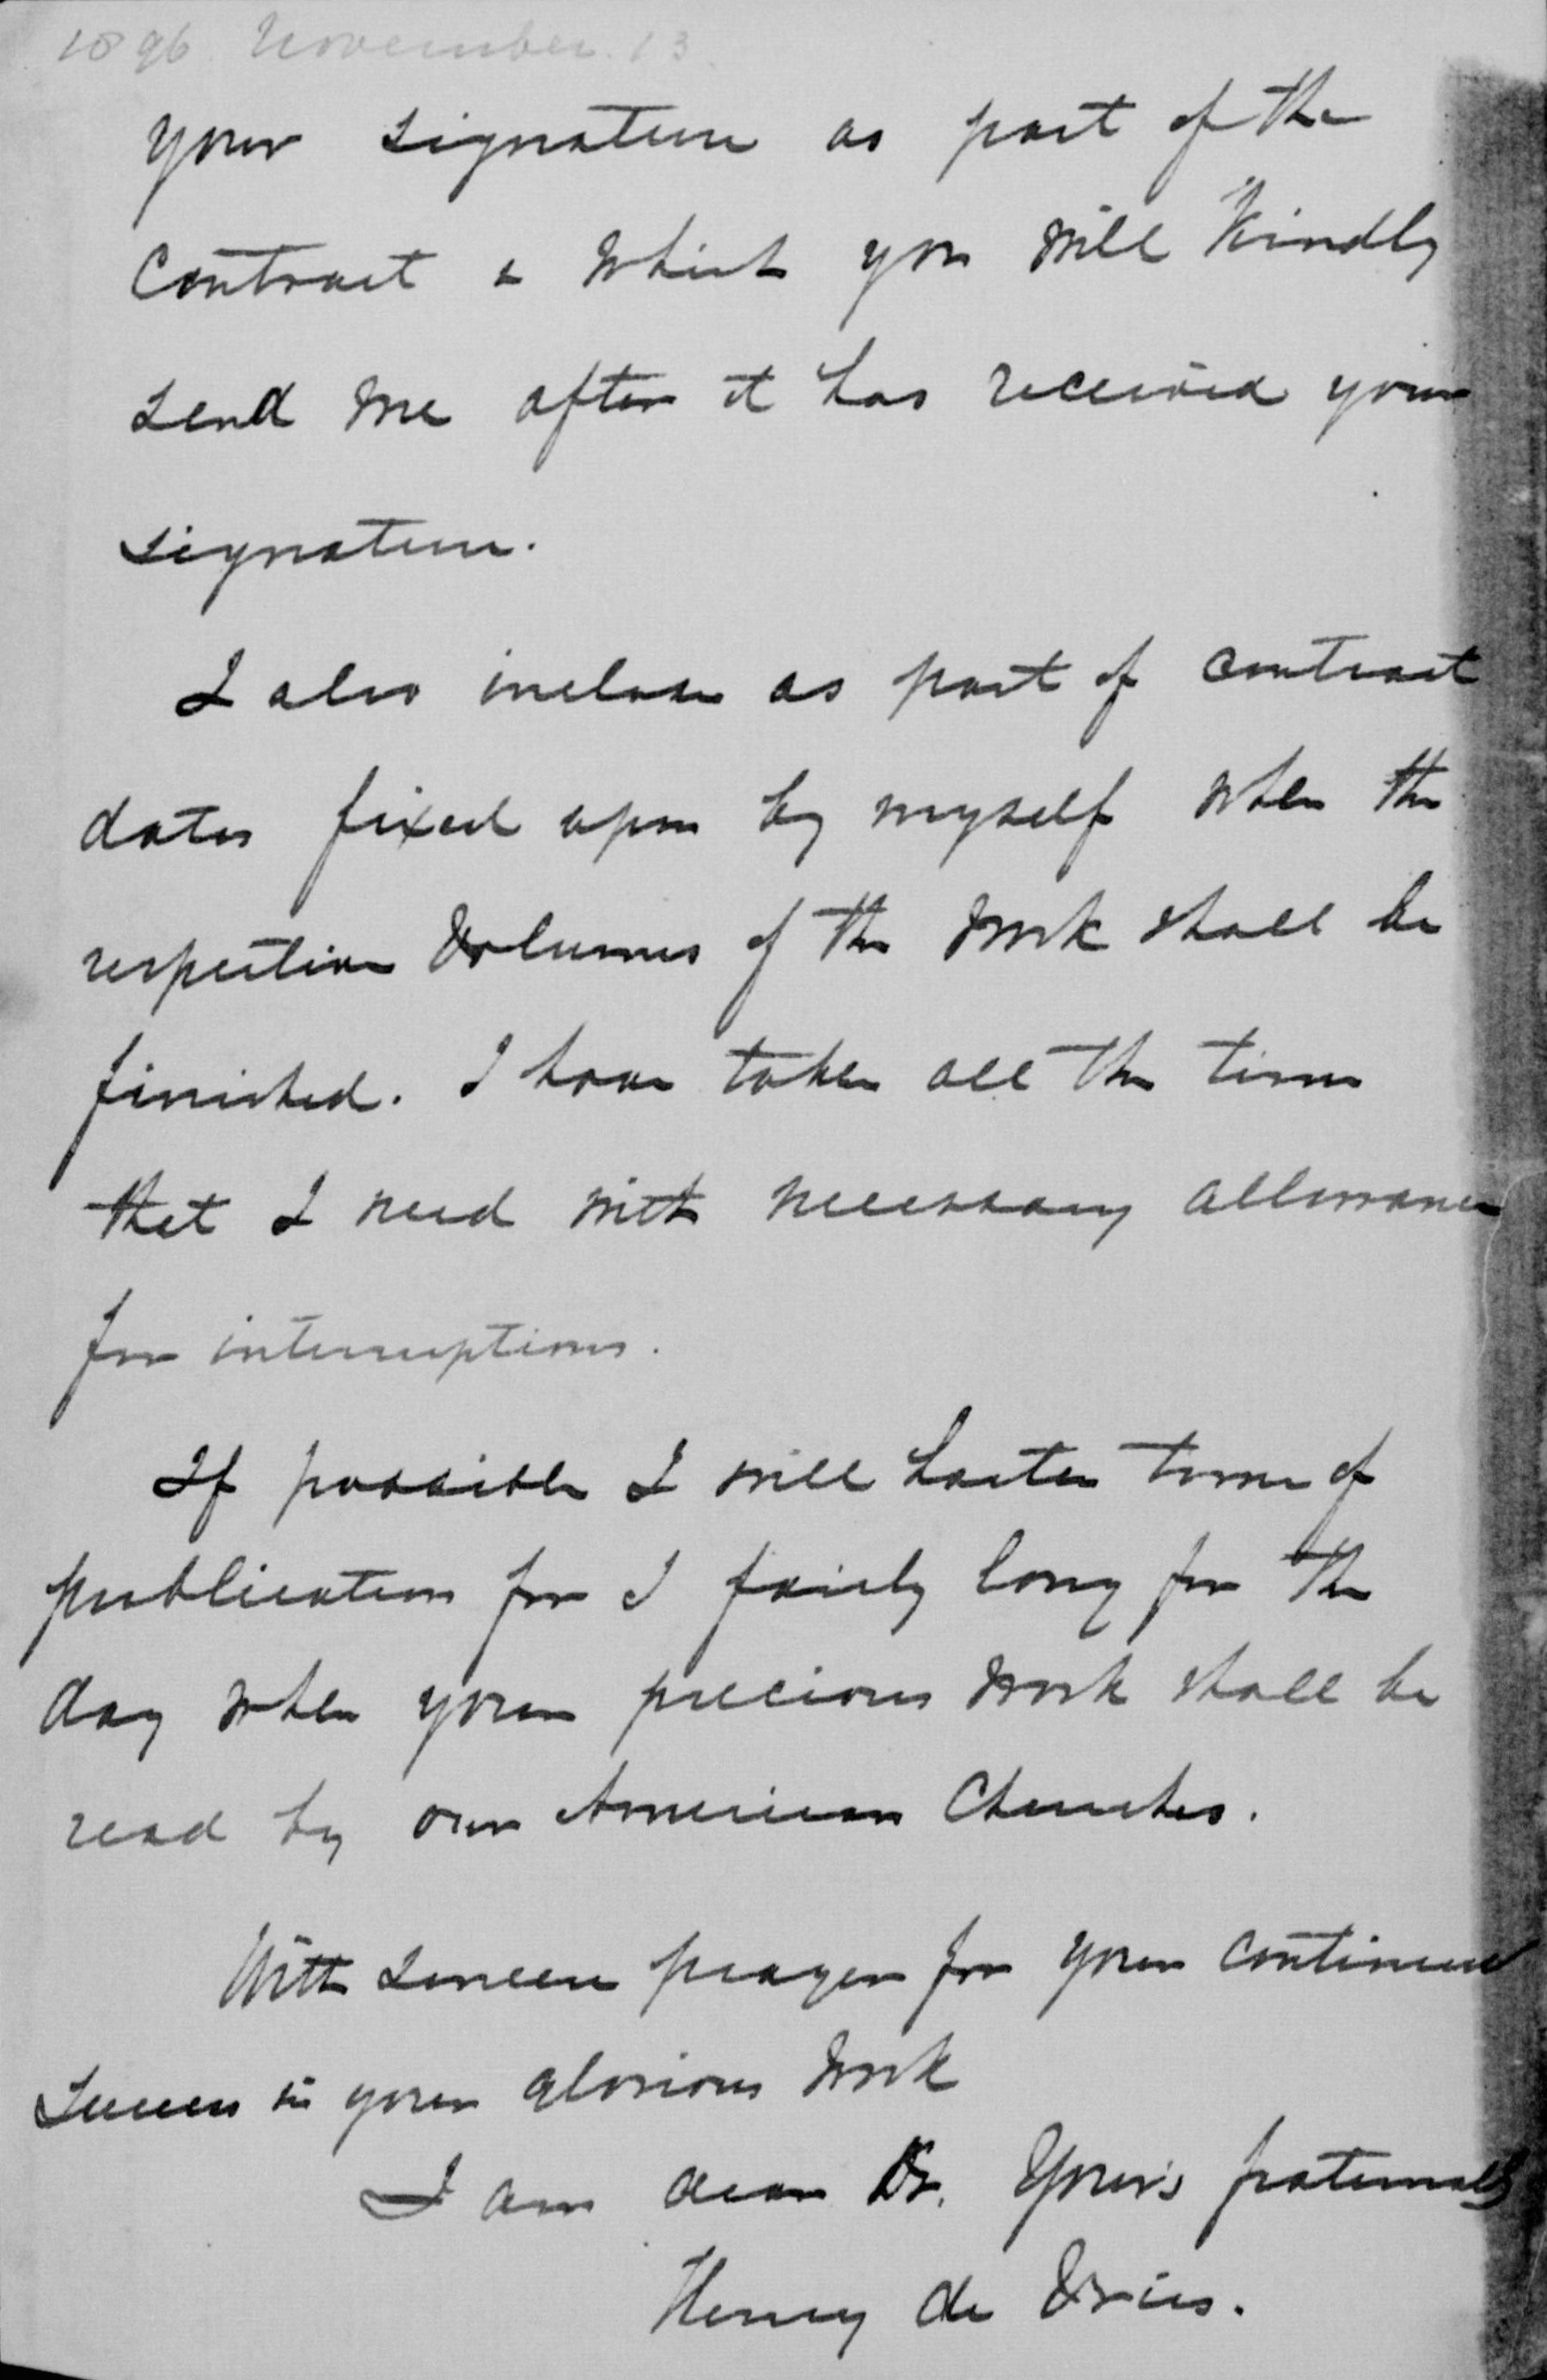 1896 November 13.
your signature as part of the
Contract & which you will kindly
send me after it has received your
signature.
I also inclose as part of contract
dates fixed upon by myself when the
respective volumes of the work shall be
finished. I have taken all the time
that I need with necessary allowance
for interruptions.
If possible I will hasten time of
publication for I fairly long for the
day when your precious work shall be
read by our American Churches.
With sincere prayer for your continued
success in your glorious work
I am dear Dr. Your's fraternally
Henry de Vries.